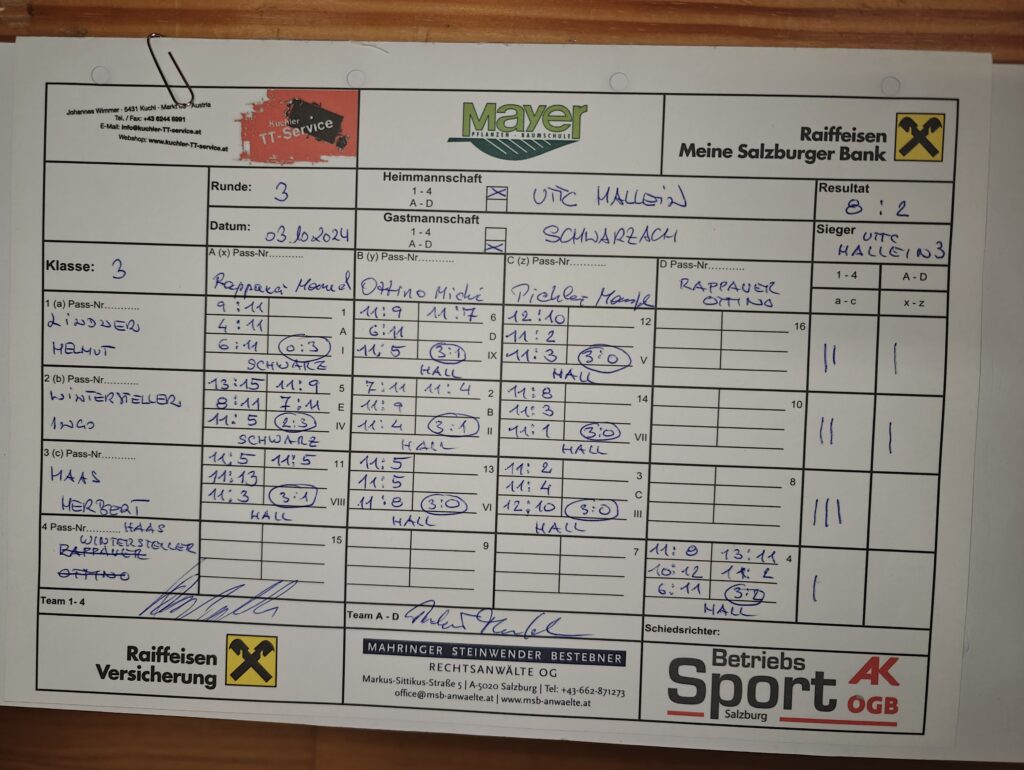 Johannes Wimmer · 5431 Kuchl · Markt 63 · Austria
Tel. / Fax: +43 6244 6991
E-Mail: info@kuchler-TT-service.at
Webshop: www.kuchler-TT-service.at
Kuchler
TT-Service
Mayer
PFLANZEN · BAUMSCHULE
Raiffeisen
Meine Salzburger Bank
Runde: 3
Heimmannschaft
1 - 4
A - D
UTTC HALLEIN
Resultat
8 : 2
Datum: 03.10.2024
Gastmannschaft
1 - 4
A - D
SCHWARZACH
Sieger UTTC
HALLEIN 3
Klasse: 3
A (x) Pass-Nr.
B (y) Pass-Nr.
Ottino
C (z) Pass-Nr.
Pichler
D Pass-Nr.
RAPPAUER
OTTINO
1 - 4 A - D
a - c x - z
1 (a) Pass-Nr.
LINDNER
HELMUT
9:11 1
4:11 A
6:11 0:3 I
SCHWARZ
11:9 11:7 6
6:11 D
11:5 3:1 IX
HALL
12:10 12
11:2
11:3 3:0 V
HALL
16
|| |
2 (b) Pass-Nr.
WINTERSTELLER
INGO
13:15 11:9 5
8:11 7:11 E
11:5 2:3 IV
SCHWARZ
7:11 11:4 2
11:9 B
11:4 3:1 II
HALL
11:8 14
11:3
11:1 3:0 VII
HALL
10
|| |
3 (c) Pass-Nr.
HAAS
HERBERT
11:5 11:5 11
11:13
11:3 3:1 VIII
HALL
11:5 13
11:5
11:8 3:0 VI
HALL
11:2 3
11:4 C
12:10 3:0 III
HALL
8
|||
4 Pass-Nr. HAAS
WINTERSTELLER
RAPPAUER
OTTINO
15
9
7
11:8 13:11 4
10:12 11:2
6:11 3:2
HALL
|
Team 1- 4
Team A - D
Schiedsrichter:
Raiffeisen
Versicherung
MAHRINGER STEINWENDER BESTEBNER
RECHTSANWÄLTE OG
Markus-Sittikus-Straße 5 | A-5020 Salzburg | Tel: +43-662-871273
office@msb-anwaelte.at | www.msb-anwaelte.at
Betriebs
Sport
Salzburg
AK
ÖGB